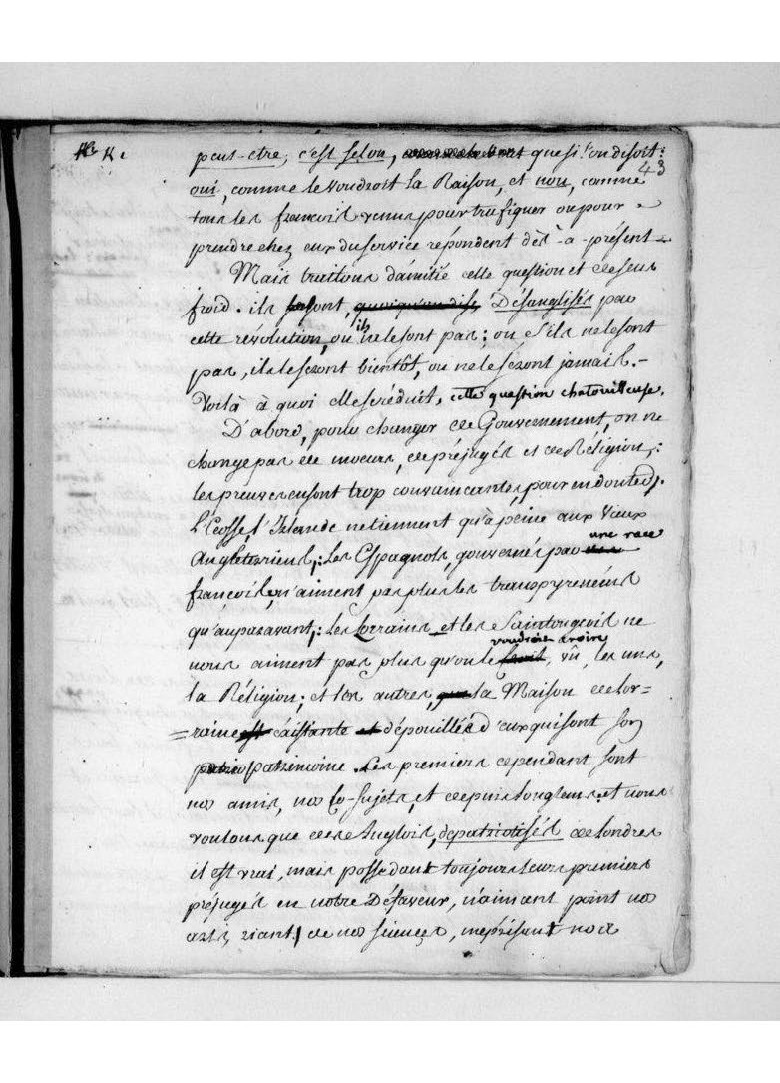 K.
peut-etre, c'est selon, que si l'on disoit:
43
oui, comme le voudroit la Raison, et non, comme
tous les francois venus pour trafiquer ou pour
prendre chez eux du service répondent dès-à-présent.
Mais traitons d'amitié cette question et de sens
froid. ils sont, quoiqu'on dise, Désanglisés par
cette révolution, ou ils ne le sont pas; ou s'ils ne le sont
pas, ils le seront bientôt, ou ne le seront jamais.-
Voilà à quoi elle se réduit, cette question chatouilleuse.
D'abord, pour changer de Gouvernement, on ne
change pas de moeurs, de préjugés et de Réligion;:
les preuves en sont trop convaincantes, pour en douter.
L'Ecosse, l'Irlande ne tiennent qu'à peine aux Vœux
Angleterriens;: Les Espagnols, gouvernés par une race
francoise, n'aiment pas plus les transpyreneins
qu'auparavant;: Les Lorrains et les Saintongeois ne
nous aiment pas plus qu'on le voudroit croire, vû, les uns,
la Réligion; et les autres, la Maison de Lor=
=raine existante et dépouillée d'eux qui sont son
patrimoine. Les premiers cependant sont
nos amis, nos Co-sujets, et depuis longtems: et nous
voulons que des Anglois, depatriotisés de Londres
il est vrai, mais possedant toujours leurs premiers
préjugés en notre Défaveur, n'aimant point nos
arts, riant de nos siences, méprisant nos